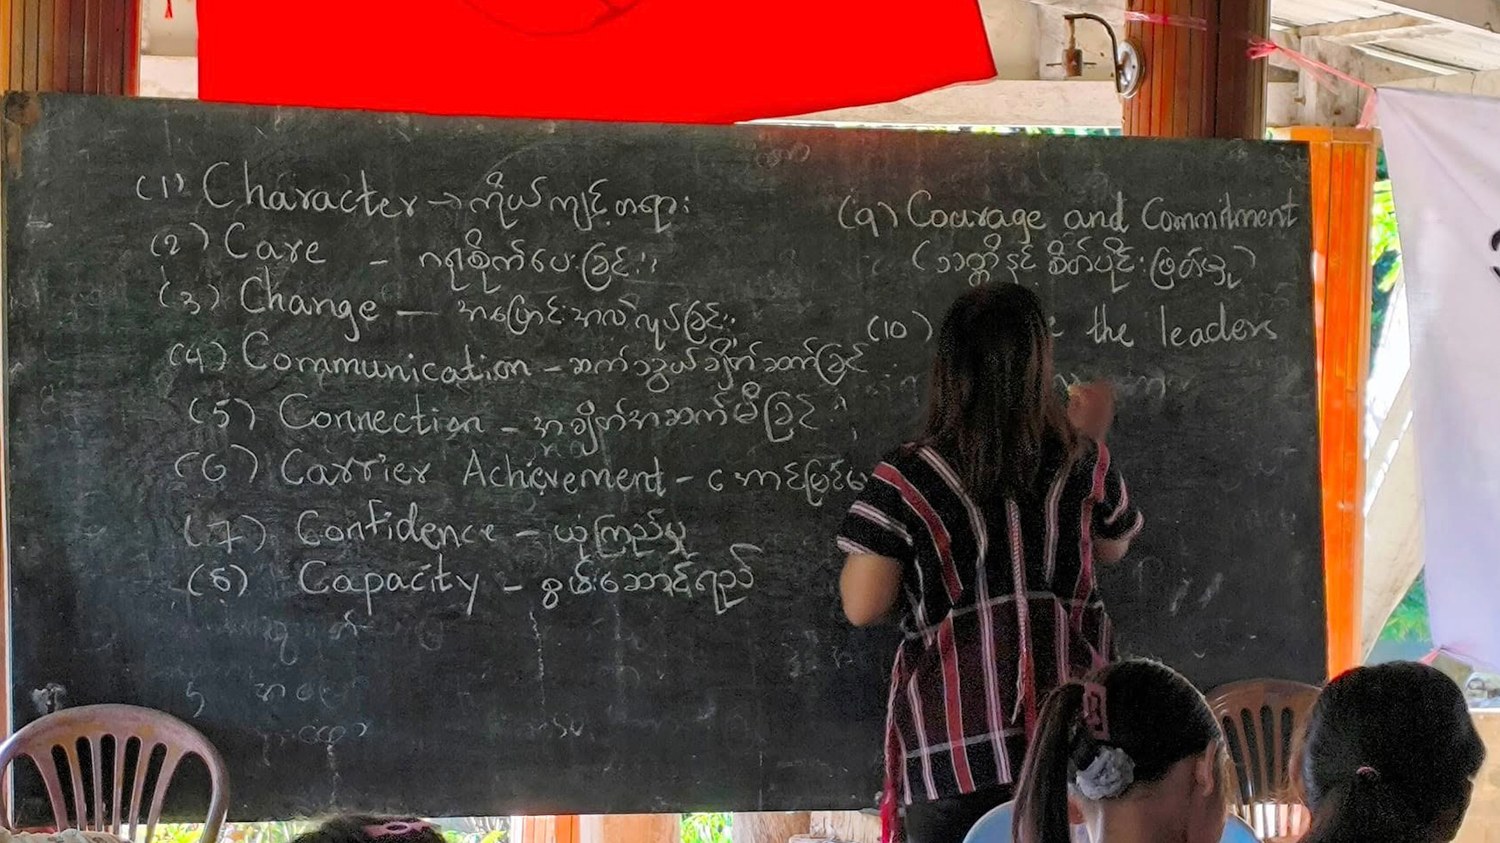 (1) Character → ကိုယ်ကျင့်တရား
(2) Care - ဂရုစိုက်ပေးခြင်း။
(3) Change — အပြောင်းအလဲလုပ်ခြင်း။
(4) Communication - ဆက်သွယ်ချိတ်ဆက်ခြင်း
(5) Connection - အချိတ်အဆက်မိခြင်း။
(6) Carrier Achievement - အောင်မြင်
(7) Confidence - ယုံကြည်မှု
(8) Capacity - စွမ်းဆောင်ရည်
(9) Courage and Commitment
(သတ္တိနှင့် စိတ်ပိုင်းဖြတ်မှု)
(10) the leaders